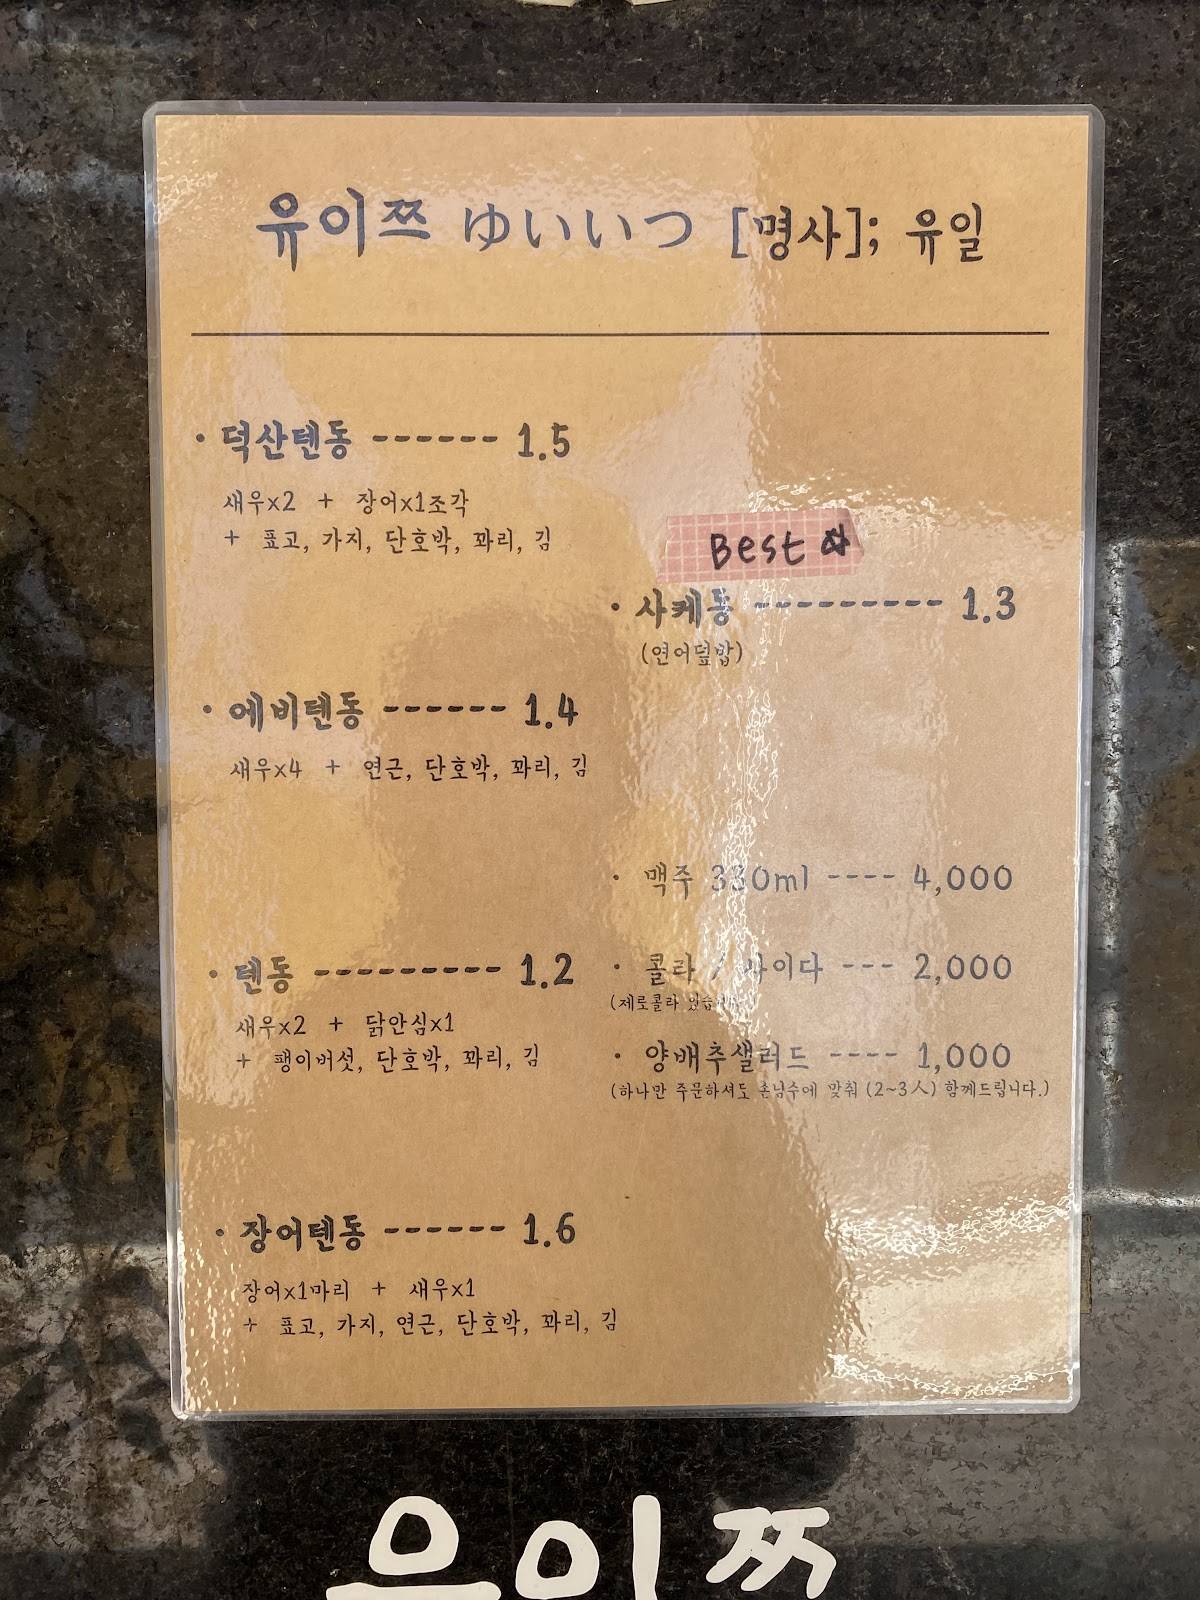 유이쯔 ゆいいつ [명사]; 유일
· 덕산텐동 ------ 1.5
새우x2 + 장어x1조각
+ 표고, 가지, 단호박, 꽈리, 김
· 에비텐동 ------ 1.4
새우x4 + 연근, 단호박, 꽈리, 김
· 텐동 --------- 1.2
새우x2 + 닭안심x1
+ 팽이버섯, 단호박, 꽈리, 김
· 장어텐동 ------ 1.6
장어x1마리 + 새우x1
+ 표고, 가지, 연근, 단호박, 꽈리, 김
Best
· 사케동 --------- 1.3
(연어덮밥)
· 맥주 330ml ---- 4,000
· 콜라 / 사이다 --- 2,000
(제로콜라
· 양배추샐러드 ---- 1,000
(하나만 주문하셔도 손님수에 맞춰 (2~3人) 함께드립니다.)
유이쯔